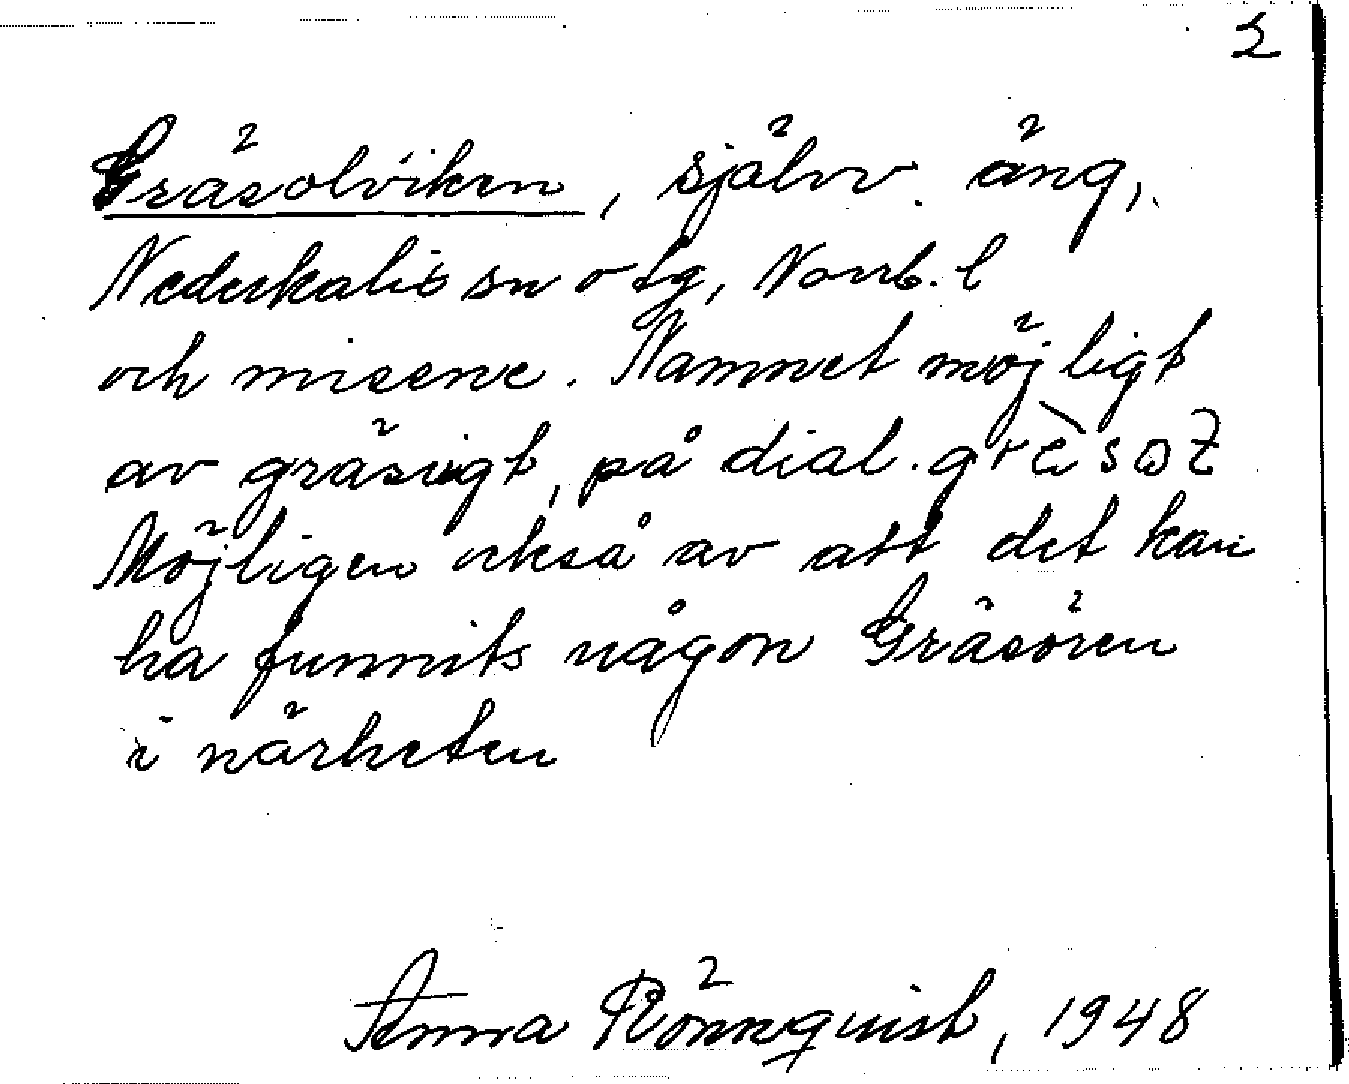 2
Gräsolviken, självv. äng,
Nederkalix sn o tg, Norrb. l
och misene. Namnet möjligt
av gräsugt, på dial.
Möjligen också av att det kan
ha funnits någon Gräsören
i närheten
Anna Rönnquist, 1948